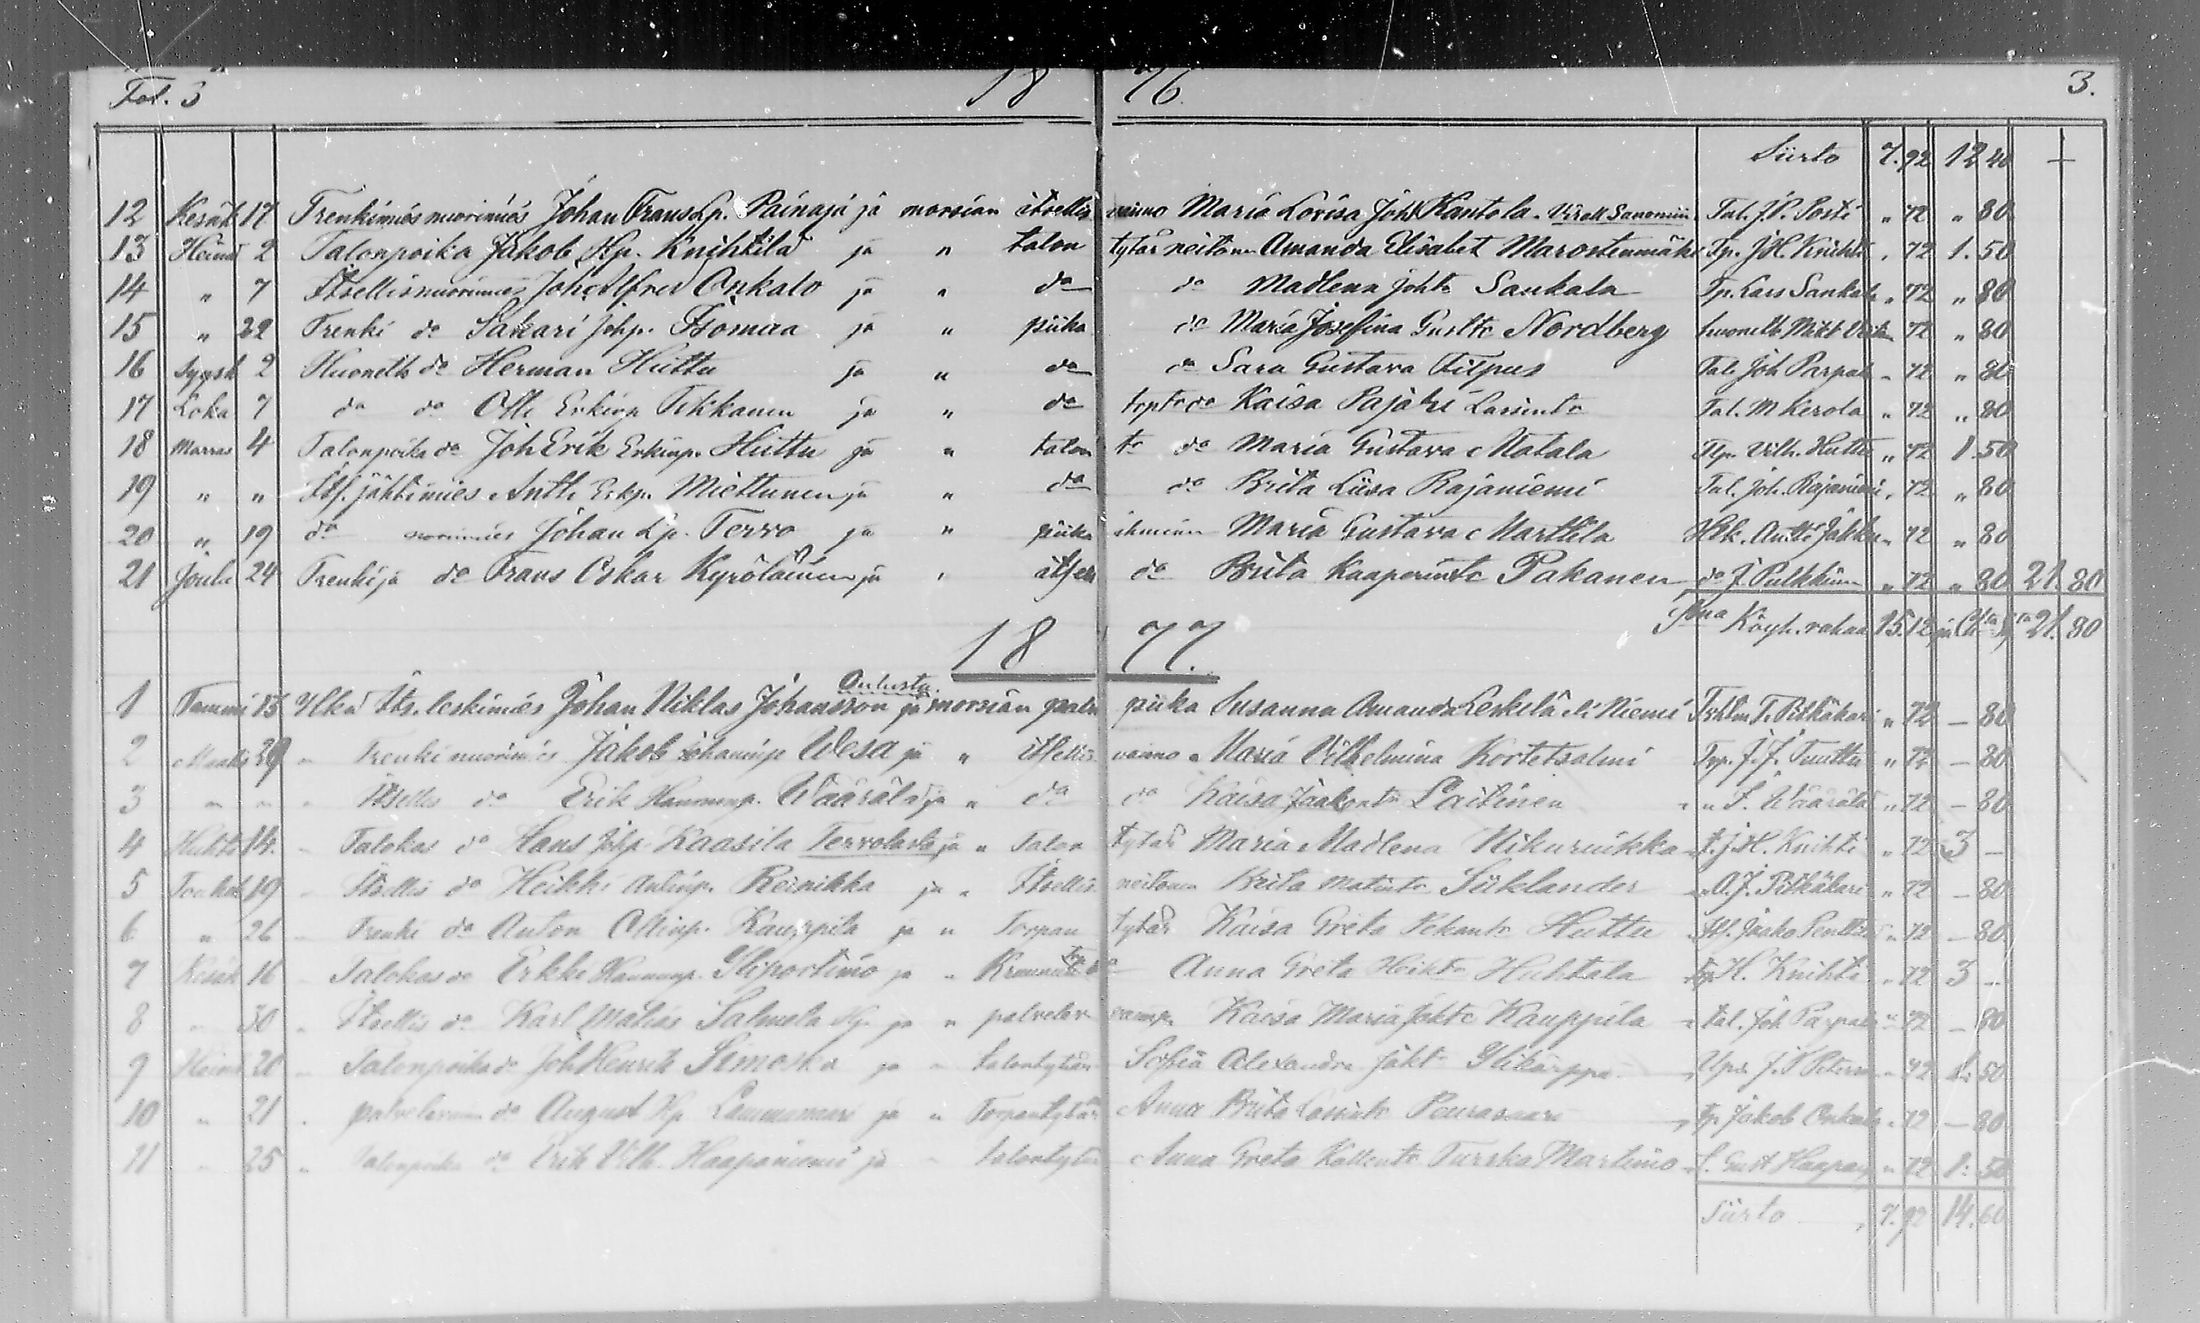 Fol. 3 18 76. 3.
Siirto 7. 92 12 40 —
12 Kesäk 17 Trenkimies nuorimies Johan Frans Lp. Painaja ja morsian itsellis vaimo Maria Lovisa Johtr Kantola Tal. J. P. Sosti „ 72 „ 80
13 Heinä 2 Talonpoika Jakob Hp. Knihtilä ja „ talon tytär neitonen Amanda Elisabet Marostenmäki Tp. J. H. Knihti „ 72 1. 50
14 „ 7 Itsellisnuorimies Joh. Alfred Onkalo ja „ do do Madlena Johtr Sankala Tp. Lars Sankala „ 72 „ 80
15 „ 22 Trenki do Sakari Johp. Isomaa ja „ piika do Maria Josefina Gusttr Nordberg „ 72 „ 80
16 Syysk 2 Huoneth do Herman Huttu ja „ do do Sara Gustava Filpus Tal. Joh Parpala „ 72 „ 80
17 Loka 7 do do Otti Erkinp Tikkanen ja „ do do Kaisa Pajari Lassintr Tal. M Kerola „ 72 „ 80
18 Marras 4 Talonpoika do Joh Erik Erkinp. Huttu ja „ talon tr do Maria Gustava Matala Tlp. Vilh. Huttu „ 72 1. 50
19 „ „ Its. jähtimies Antti Erkp. Miettunen ja „ do do Brita Liisa Rajaniemi Tal. Joh. Rajaniemi „ 72 „ 80
20 „ 19 do nuorimies Johan Lp. Tervo ja „ piika ihminen Maria Gustava Marttila Antti Jakku „ 72 „ 80
21 Joulu 24 Trenkijä do Frans Oskar Kyröläinen ja „ itsen do Brita Kaaperintr Pakanen do J. Pulkkinen „ 72 „ 80 21. 80
Sma Köyh. rahaa 15. 12 ja 21. 80
18 77.
Oulusta.
1 Tammi 15 Ulka Its. leskimies Johan Niklas Johansson ja morsian palv piika Susanna Amanda Leskelä eli Niemi T. Pitkäkari „ 72 — 80
2 Maalis 29 „ Trenki nuorimies Jakob Juhaninp Wesa ja „ itsellis vaimo Maria Vilhelmina Kortetsalmi Typ. J. J. Tuuttu „ 72 — 80
3 „ „ „ Itsellis do Erik Hannunp. Wäärälä ja „ do do Kaisa Jaakontr Laitinen „ S. Wäärälä „ 72 — 80
4 Huhti 14. „ Talokas do Hans Johp Kaasila Tervolasta ja „ Talon tytär Maria Madlena Nikuruikka t. J. H. Knihti „ 72 3 —
5 Toukok 19 „ Itsellis do Heikki Antinp. Reinikka ja „ Itsellis neitonen Brita Matintr Siiklander A. J. Pitkäkari „ 72 — 80
6 „ 26 „ Trenki do Anton Ollinp. Kauppila ja „ Torpan tytär Kaisa Greta Pekantr Huttu Jaako Penttilä „ 72 — 80
7 Kesäk 16 „ Talokas do Erkki Hannunp. Yliportimo ja „ Anna Greta Heiktr Huhtala H. Knihti „ 72 3 —
8 „ 30 „ Itsellis do Karl Matias Salmela Hp ja „ palvelev vaimp. Kaisa Maria Jaktr Kauppila Tal. Joh Parpala „ 72 — 80
9 Heinä 20 „ Talonpoika do Joh Henrik Simoska ja „ talontytär Sofia Alexandra Jaktr Ylikärppä „ 72 1. 50
10 „ 21 „ palvelevan do August Hp. ja „ Torpantytär Anna Brita Lassintr Peurasaari Tp. Jakob Onkalo „ 72 — 80
11 „ 25 „ Talonpoika do Erik Vilh. Haapaniemi ja „ talontytär Anna Greta Kallentr Turska Martimo „ 72 1: 50
Siirto 7. 92 14. 60